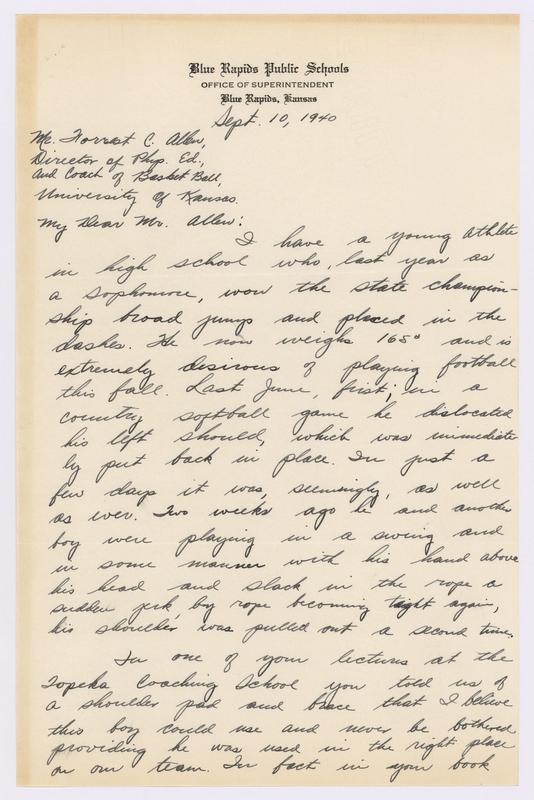 Blue Rapids Public Schools
OFFICE OF SUPERINTENDENT
Blue Rapids, Kansas
Sept. 10, 1940
Mr. Forrest C. Allen,
Director of Phys. Ed.,
and Coach of Basket Ball,
University of Kansas.
My Dear Mr. Allen:
I have a young athlete
in high school who, last year as
a sophomore, won the state champion-
ship broad jumps and placed in the
dashes. He now weighs 165# and is
extremely desirous of playing football
this fall. Last June, first, in a
country softball game he dislocated
his left should, which was immediate-
ly put back in place. In just a
few days it was, seemingly, as well
as ever. Two weeks ago he and another
boy were playing in a swing and
in some manner with his hand above
his head and slack in the rope a
sudden jerk, by rope becoming tight again,
his shoulder was pulled out a second time.
In one of your lectures at the
Topeka Coaching School you told us of
a shoulder pad and brace that I believe
this boy could use and never be bothered
providing he was used in the right place
on our team. In fact in your book